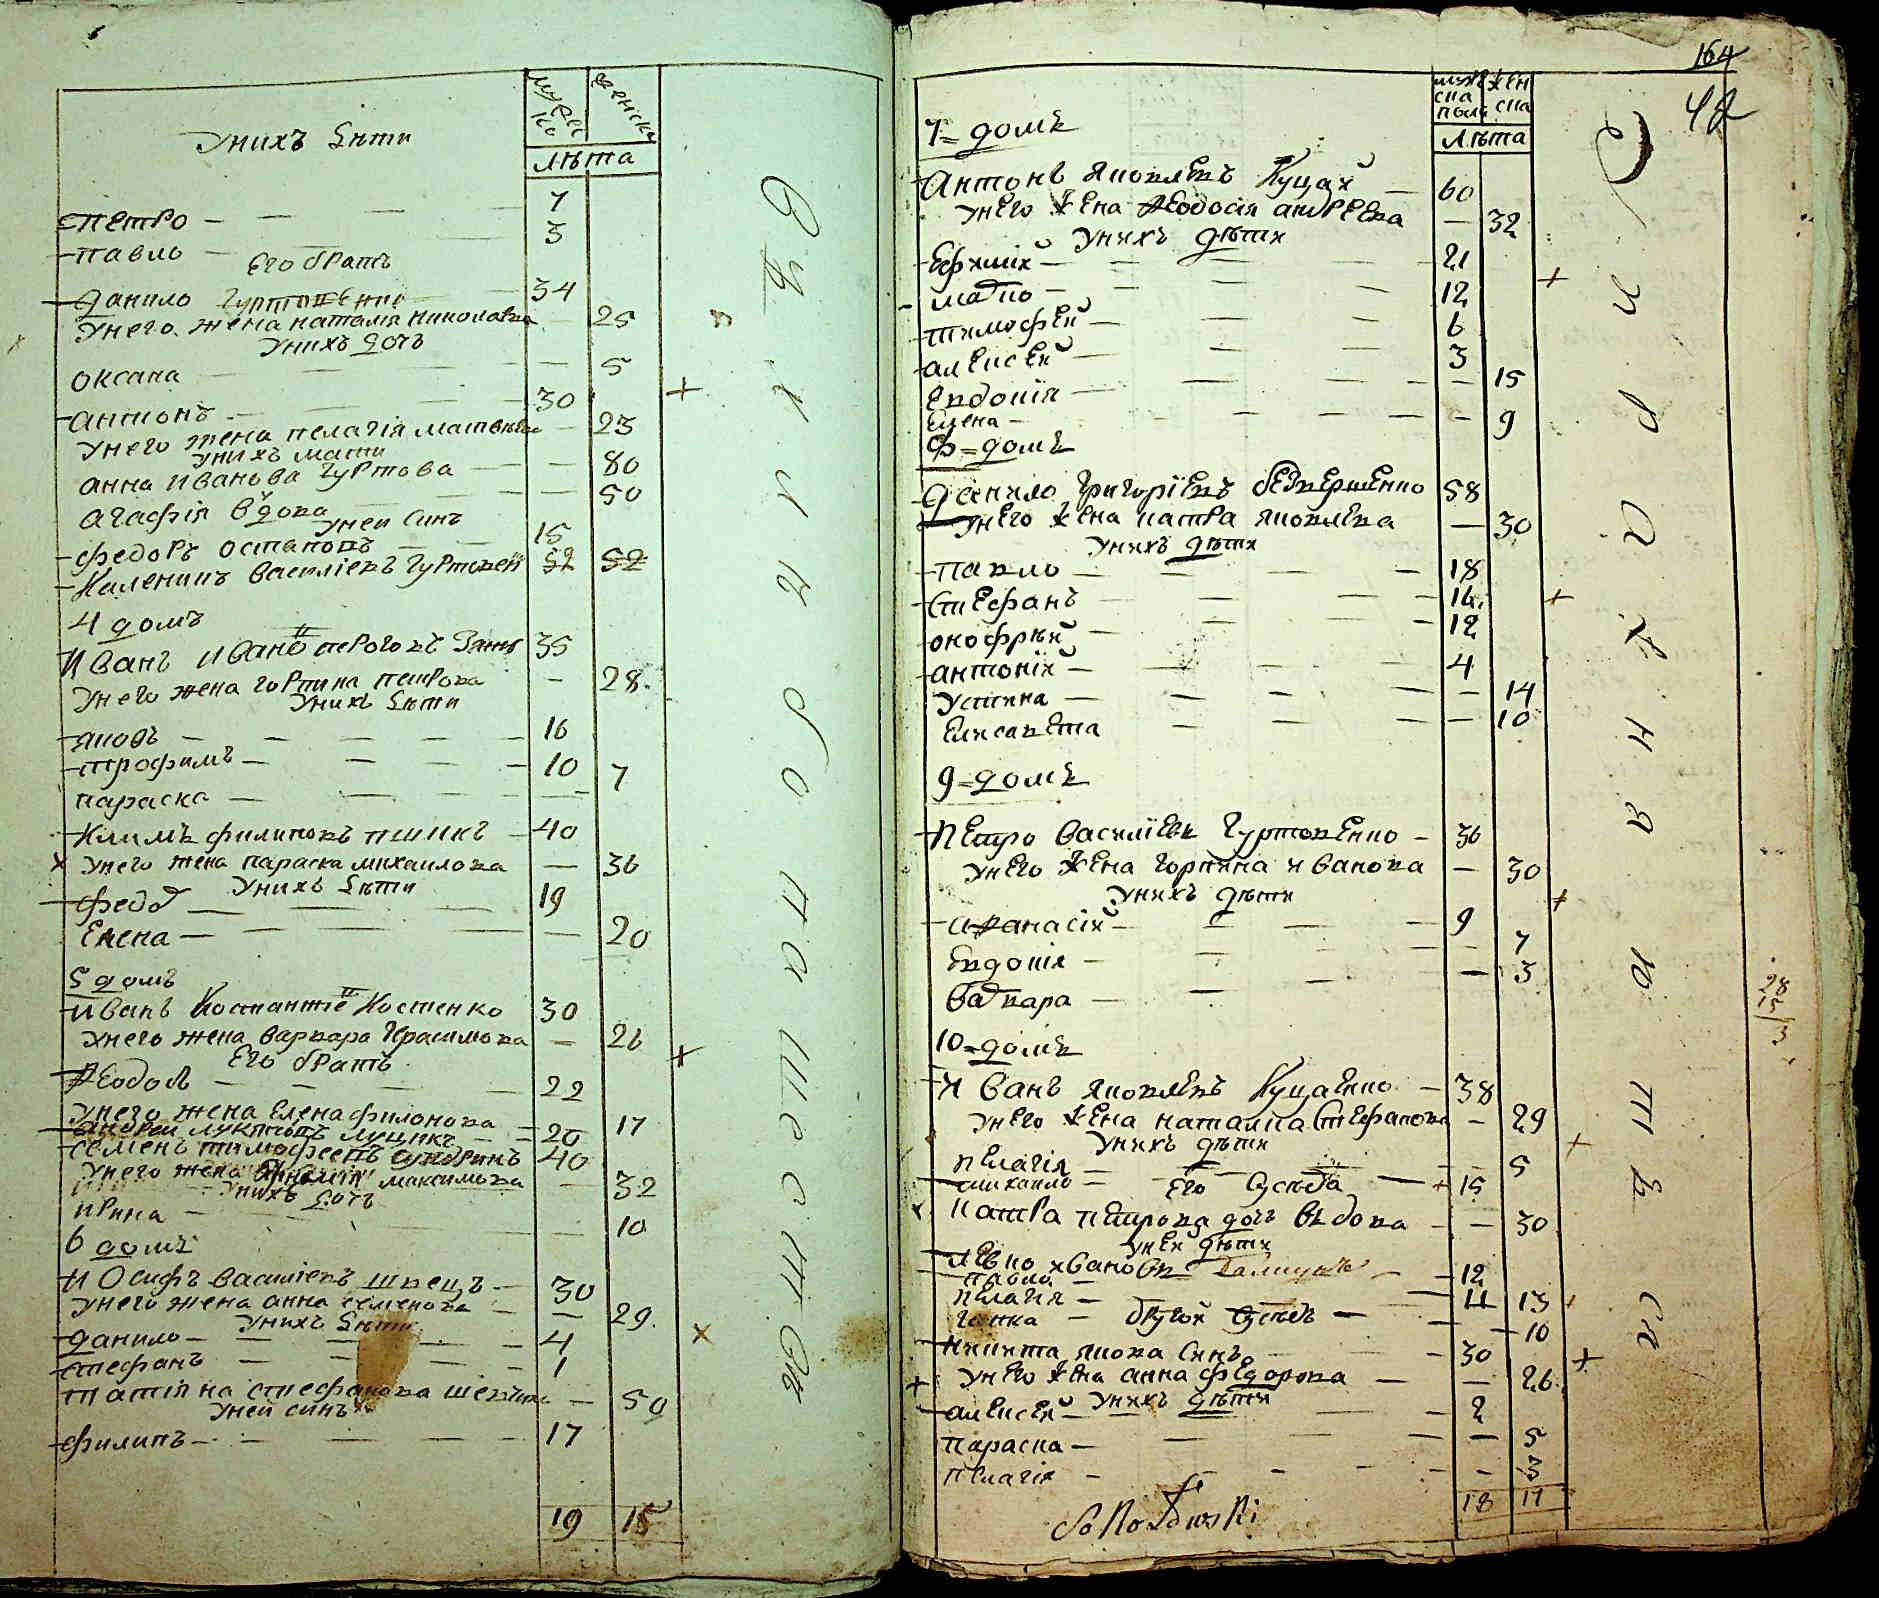 мужеско
женска
лѣта
унихъ дѣти
петро 7
павло 3
Его братъ
данило гуртовенко 34
унего жена наталія николаева 25
унихъ дочь
оксана 5
антонъ 30
унего жена пелагія матвѣева 23
унихъ мати
анна иванова гуртова 80
агафія вдова 50
уней синъ
федоръ остаповъ 15
Каленикъ василіевъ гуртовей 52 52
4 домъ
Иванъ ивано 35
унего жена горпина петрова 28
унихъ дѣти
яковъ 16
трофимъ 10
параска 7
Климъ филиповъ 40
унего жена параска михаилова 36
унихъ дѣти
федор 19
Елена 20
5 домъ
иванъ Костенко 30
унего жена варвара Герасимова 26
Его братъ
Ѳеодор 22
унего жена Елена филонова 17
андрей луцикъ 20
семенъ тимофеевъ 40
унего жена максимова 32
унихъ дочь
ирина 10
6 домъ
Иосифъ василіевъ швецъ 30
унего жена анна семенова 29
унихъ дѣти
данило 4
стефанъ 1
татіяна стефанова 50
уней синъ
филипъ 17
19 15
164
42
мужеска полу
женска
лѣта
7=домъ
Антонъ яковлевъ Куцай 60
унего жена Ѳеодосія андреева 32
унихъ дѣти
Ефимій 21
марко 12
тимофей 6
алексей 3
Евдокія 15
Елена 9
Ф=домъ
данило григоріевъ безвершенко 58
унего жена катра яковлева 30
унихъ дѣти
павло 18
стефанъ 14
онофрѣй 12
антоній 4
устина 14
Елисавета 10
9=домъ
Петро василіевъ гуртовенко 36
унего жена горпина иванова 30
унихъ дѣти
аѳанасій 9
Евдокія 7
варвара 3
10=домъ
Иванъ яковлевъ Куцаенко 38
унего жена наталка стефанова 29
унихъ дѣти
пелагія 5
михаило 15
Его сусѣда
катра петрова дочь вдова 30
уней дѣти
левко ивановъ 12
павло 11
пелагія 13
ганка 10
другой сусѣдъ
никита якова синъ 30
унего жена анна федорова 26
унихъ дѣти
алексей 2
параска 5
пелагія 3
18 17
Sokołowski
28
15
3